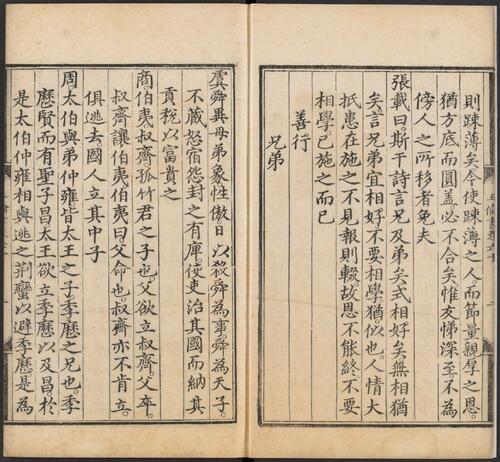 則踈薄矣今使踈薄之人而節量親厚之恩
猶方底而圓盖必不合矣惟友悌深至不為
傍人之所移者免夫
張載曰斯干詩言兄及弟矣式相好矣無相猶
矣言兄弟宜相好不要相學猶似也人情大
抵患在施之不見報則輟故恩不能終不要
相學己施之而已
善行
兄弟
虞舜異母弟象性傲日以殺舜為事舜為天子
不藏怒宿怨封之有庳使吏治其國而納其
貢税以富貴之
商伯夷叔齊孤竹君之子也父欲立叔齊父卒
叔齊讓伯夷伯夷曰父命也叔齊亦不肯立
俱逃去國人立其中子
周太伯與弟仲雍皆太王之子季歷之兄也季
歷賢而有聖子昌太王欲立季歷以及昌於
是太伯仲雍相與逃之荆蠻以避季歷是為